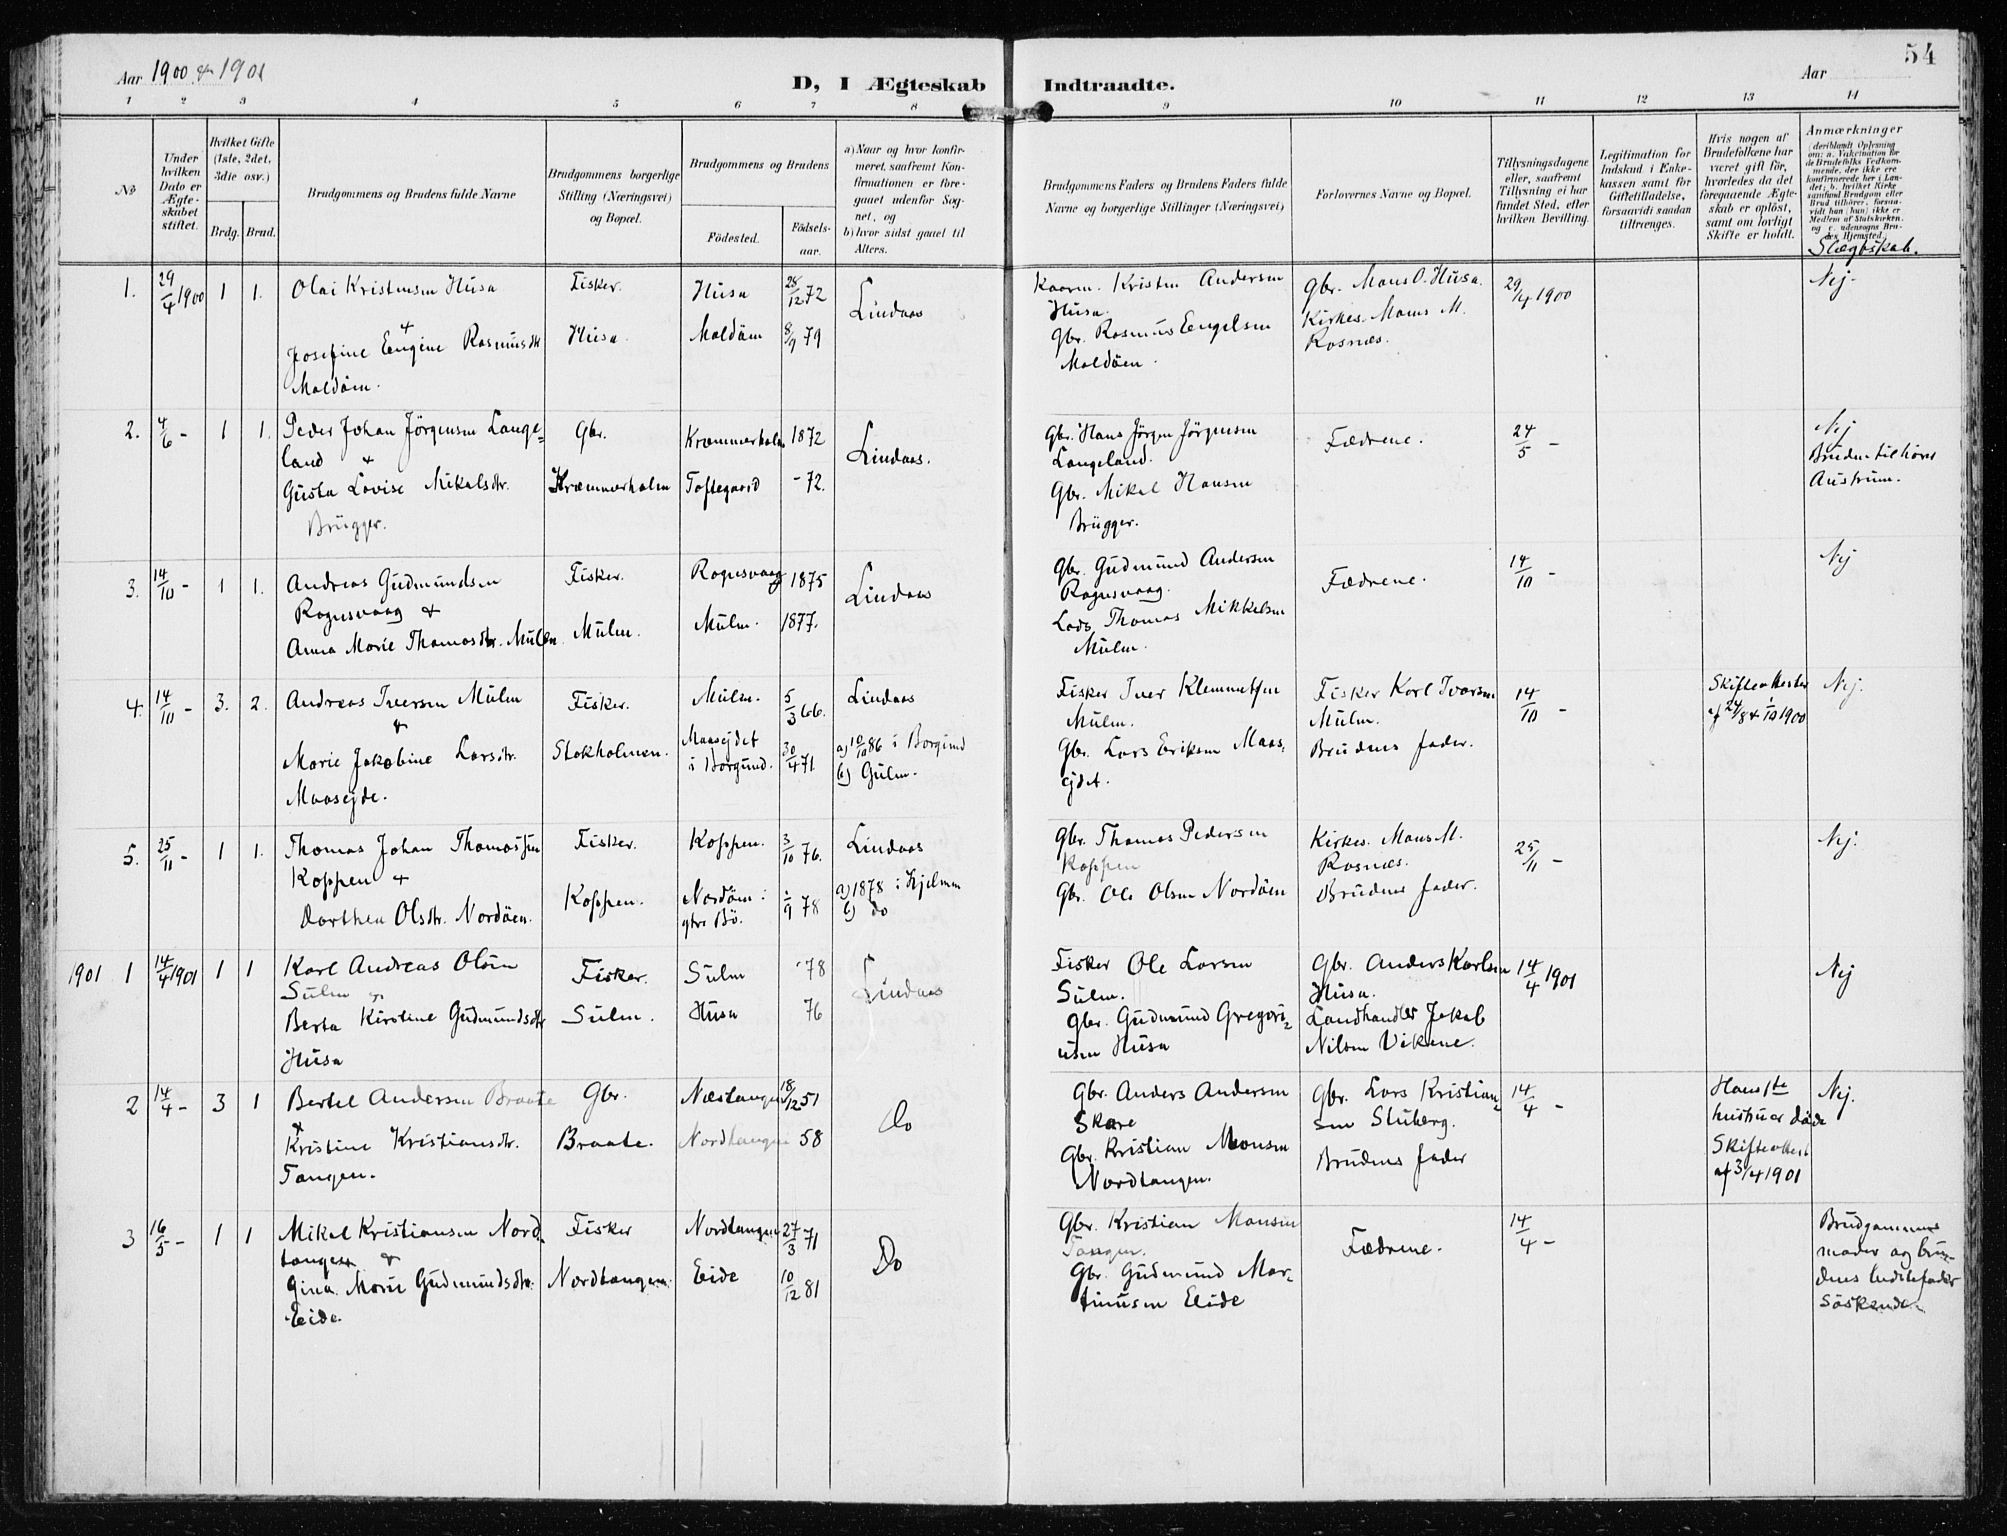 54
Aar 1900 & 1901
D, I Ægteskab Indtraadte.
Aar
1 2 3 4 5 6 7 8 9 10 11 12 13 14
No
Under hvilken Dato er Ægteskabet stiftet.
Hvilket Gifte (1ste, 2det, 3die osv.)
Brdg. Brud.
Brudgommens og Brudens fulde Navne
Brudgommens borgerlige Stilling (Næringsvei) og Bopæl.
Brudgommens og Brudens
Födested. Födselsaar.
a) Naar og hvor konfirmeret, saafremt Konfirmationen er foregaaet udenfor Sognet, og
b) hvor sidst gaaet til Alters.
Brudgommens Faders og Brudens Faders fulde Navne og borgerlige Stillinger (Næringsvei)
Forlovernes Navne og Bopæl.
Tillysningsdagene eller, saafremt Tillysning ei har fundet Sted, efter hvilken Bevilling.
Legitimation for Indskud i Enkekassen samt for Giftetilladelse, forsaavidt saadan tiltrænges.
Hvis nogen af Brudefolkene har været gift för, hvorledes da det foregaaende Ægteskab er oplöst, samt om lovligt Skifte er holdt.
Anmærkninger
Slægtskab.
1. 29/4 1900 1 1.
Olai Kristensen Husa
+
Josefine Eugine Rasmusdtr
Moldöen.
Fisker.
Husa.
Husa 28/12 72
Moldöen 8/9 79
Lindaas
Kristen Andersen
Husa.
Gbr. Rasmus Engelsen
Moldöen.
Gbr. Mons O. Husa.
Kirkes. Mons M.
Rosnæs.
29/4 1900
Nej.
2. 4/6 - 1 1.
Peder Johan Jörgensen Lange=
land +
Gusta Lovise Mikalsdtr.
Brügger.
Gbr.
Kræmmerholm
Kræmmerholm 1872
Toftegaard - 72.
Lindaas.
Gbr. Hans Jörgen Jörgensen
Langeland.
Gbr. Mikal Hansen
Brügger.
Fædrene.
24/5 -
Nej
Bruden tilhörer
Austrum.
3. 14/10 - 1 1.
Andreas Gudmundsen
Rognsvaag +
Anna Marie Thomasdtr. Mulen
Fisker.
Mulen.
Rognsvaag 1875
Mulen. 1877.
Lindaas
Gbr. Gudmund Andersen
Rognsvaag.
Lods Thomas Mikkelsen
Mulen.
Fædrene.
14/10 -
Nej
4. 14/10 - 3. 2.
Andreas Iversen Mulen
+
Marie Jakobine Larsdtr.
Maasejde.
Fisker.
Stokholmen.
Mulen. 5/3 66.
Maasejdet
i Borgund. 30/4 71
Lindaas
a) 10/10 86 i Borgund
b) Gulen.
Fisker Iver Klemmetsen
Mulen.
Gbr. Lars Eriksen Maas=
ejdet.
Fisker Karl Ivarsen
Mulen.
Brudens fader.
14/10 -
Skifteattester
af 24/8 + 1/10 1900
Nej.
5. 25/11 - 1 1.
Thomas Johan Thomassen
Koppen +
Dorthea Olsdtr. Nordöen.
Fisker.
Koppen.
Koppen. 3/10 76.
Nordöen i
Bö. 1/9 78
Lindaas
a) 1878 i Hjelmen
b) do
Gbr. Thomas Pedersen
Koppen
Gbr. Ole Olsen Nordöen
Kirkes. Mons M.
Rosnæs.
Brudens fader.
25/11 -
Nej.
1901 1 14/4 1901 1 1
Karl Andreas Olsen
Sulen &
Berta Kirstine Gudmundsdtr
Husa
Fisker.
Sulen.
Sulen 78
Husa 76
Lindaas
Fisker Ole Larsen
Sulen.
Gbr. Gudmund Gregori=
usen Husa
Gbr. Anders Karlsen
Husa.
Landhandler Jakob
Nilsen Vikene.
14/4 1901
Nej
2 14/4 - 3 1
Bertel Andersen Braate
&
Kristine Kristiansdtr.
Tangen.
Gbr.
Braate.
Næstangen 18/12 51
Nordtangen 58
Do
Gbr. Anders Andersen
Skare
Gbr. Kristian Monsen
Nordtangen.
Gbr. Lars Kristian=
sen Sluberg.
Brudens fader
14/4 -
Hans 1te
hustruer döde
Skifteattest
af 3/4 1901
Nej.
3 16/5 - 1 1
Mikal Kristiansen Nord=
tangen &
Gina Marie Gudmundsdtr.
Eide.
Fisker
Nordtangen.
Nordtangen 27/3 71
Eide 10/12 81
Do
Gbr. Kristian Monsen
Tangen.
Gbr. Gudmund Mar=
tinusen Eide
Fædrene.
14/4 -
Brudgommens
moder og bru=
dens bedstefader
söskende.